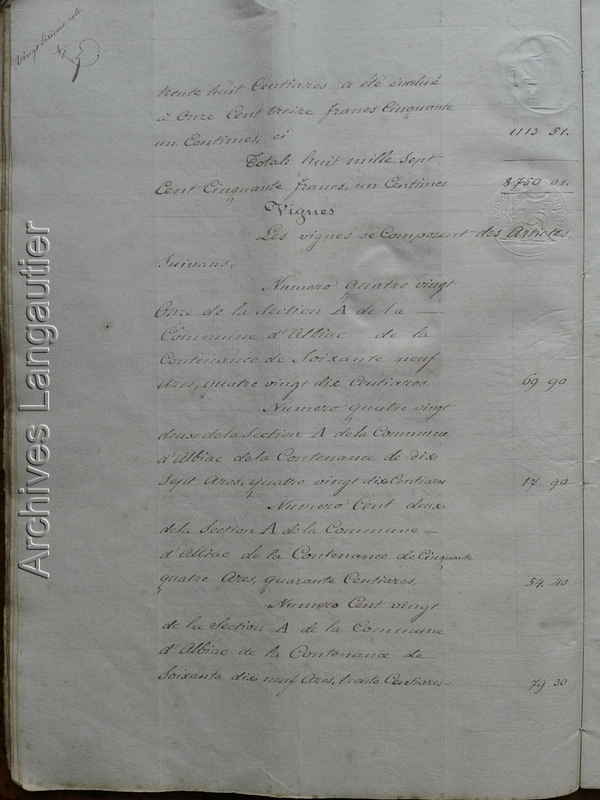 Vingt sixieme role
trente huit Centiares a été évalué
à Onze Cent treize francs Cinquante
un Centimes, ci 1113 51.
Total: huit mille Sept
Cent Cinquante francs, un Centimes 8,750 01.
Vignes
Les vignes se Composent des Articles
Suivans,
Numero quatre vingt
Onze de la Section A de la —
Commune d'Albiac de la
Contenance de Soixante neuf
Ares, quatre vingt dix Centiares 69 90
Numero quatre vingt
deux de la Section A de la Commune
d'Albiac de la Contenance de dix
Sept Ares, quatre vingt dix Centiares 17 90
Numero Cent deux
de la Section A de la Commune —
d'Albiac de la Contenance de Cinquante
quatre Ares, quarante Centiares. 54 40
Numero Cent vingt
de la Section A de la Commune
d'Albiac de la Contenance de
Soixante dix neuf Ares, trente Centiares 79 30
Archives Langautier